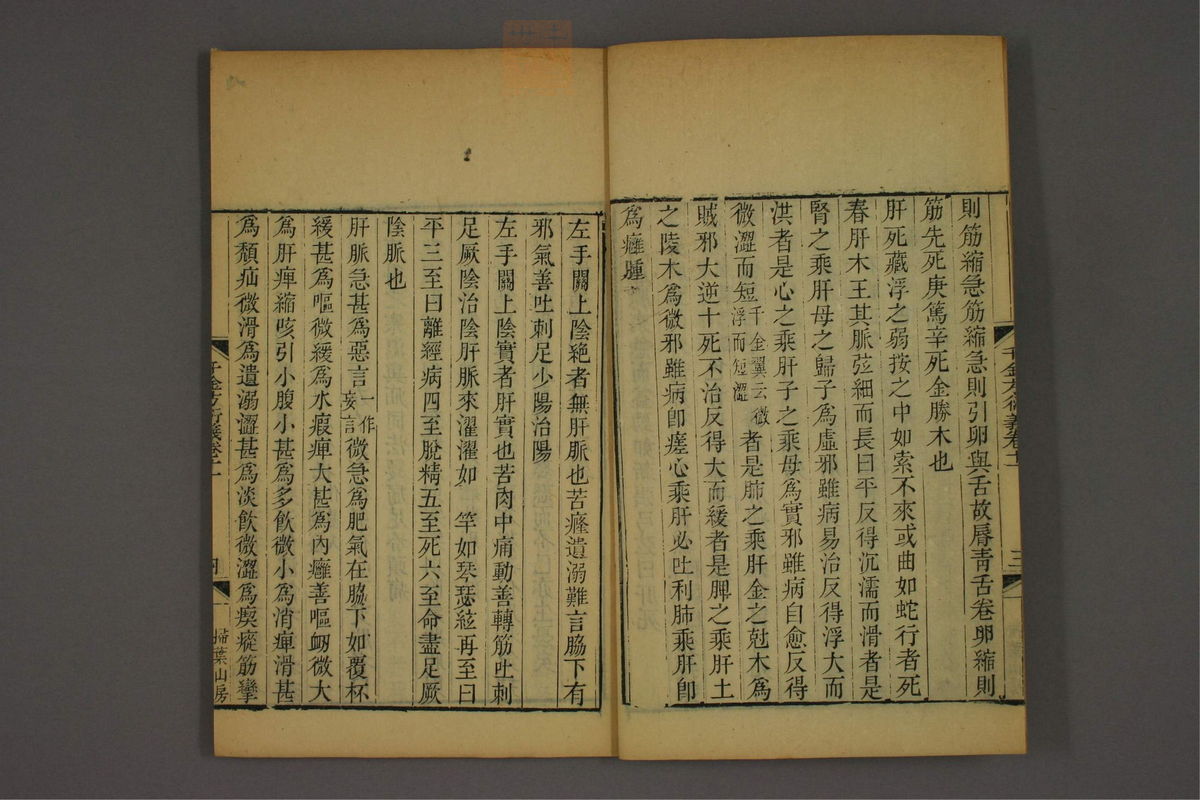 則筋縮急筋縮急則引卵與舌故脣青舌卷卵縮則
筋先死庚篤辛死金勝木也
肝死藏浮之弱按之中如索不來或曲如蛇行者死
春肝木王其脈弦細而長曰平反得沉濡而滑者是
腎之乘肝母之歸子為虛邪雖病易治反得浮大而
洪者是心之乘肝子之乘母為實邪雖病自愈反得
微澀而短千金翼云微浮而短澀者是肺之乘肝金之尅木為
賊邪大逆十死不治反得大而緩者是脾之乘肝土
之陵木為微邪雖病卽瘥心乘肝必吐利肺乘肝卽
為癰腫
千金方衍義卷十一
三
左手關上陰絕者無肝脈也苦癃遺溺難言脇下有
邪氣善吐刺足少陽治陽
左手關上陰實者肝實也苦肉中痛動善轉筋吐刺
足厥陰治陰肝脈來濯濯如 竿如琴瑟絃再至曰
平三至曰離經病四至脫精五至死六至命盡足厥
陰脈也
肝脈急甚為惡言一作妄言微急為肥氣在脇下如覆杯
緩甚為嘔微緩為水瘕痺大甚為內癰善嘔衂微大
為肝痺縮咳引小腹小甚為多飲微小為消痺滑甚
為㿗疝微滑為遺溺澀甚為淡飲微澀為瘈瘲筋攣
千金方衍義卷十一
四
掃葉山房